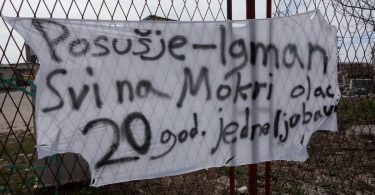 Posušje-Igman
Svi na Mokri Dolac
20 god. jedne ljubavi